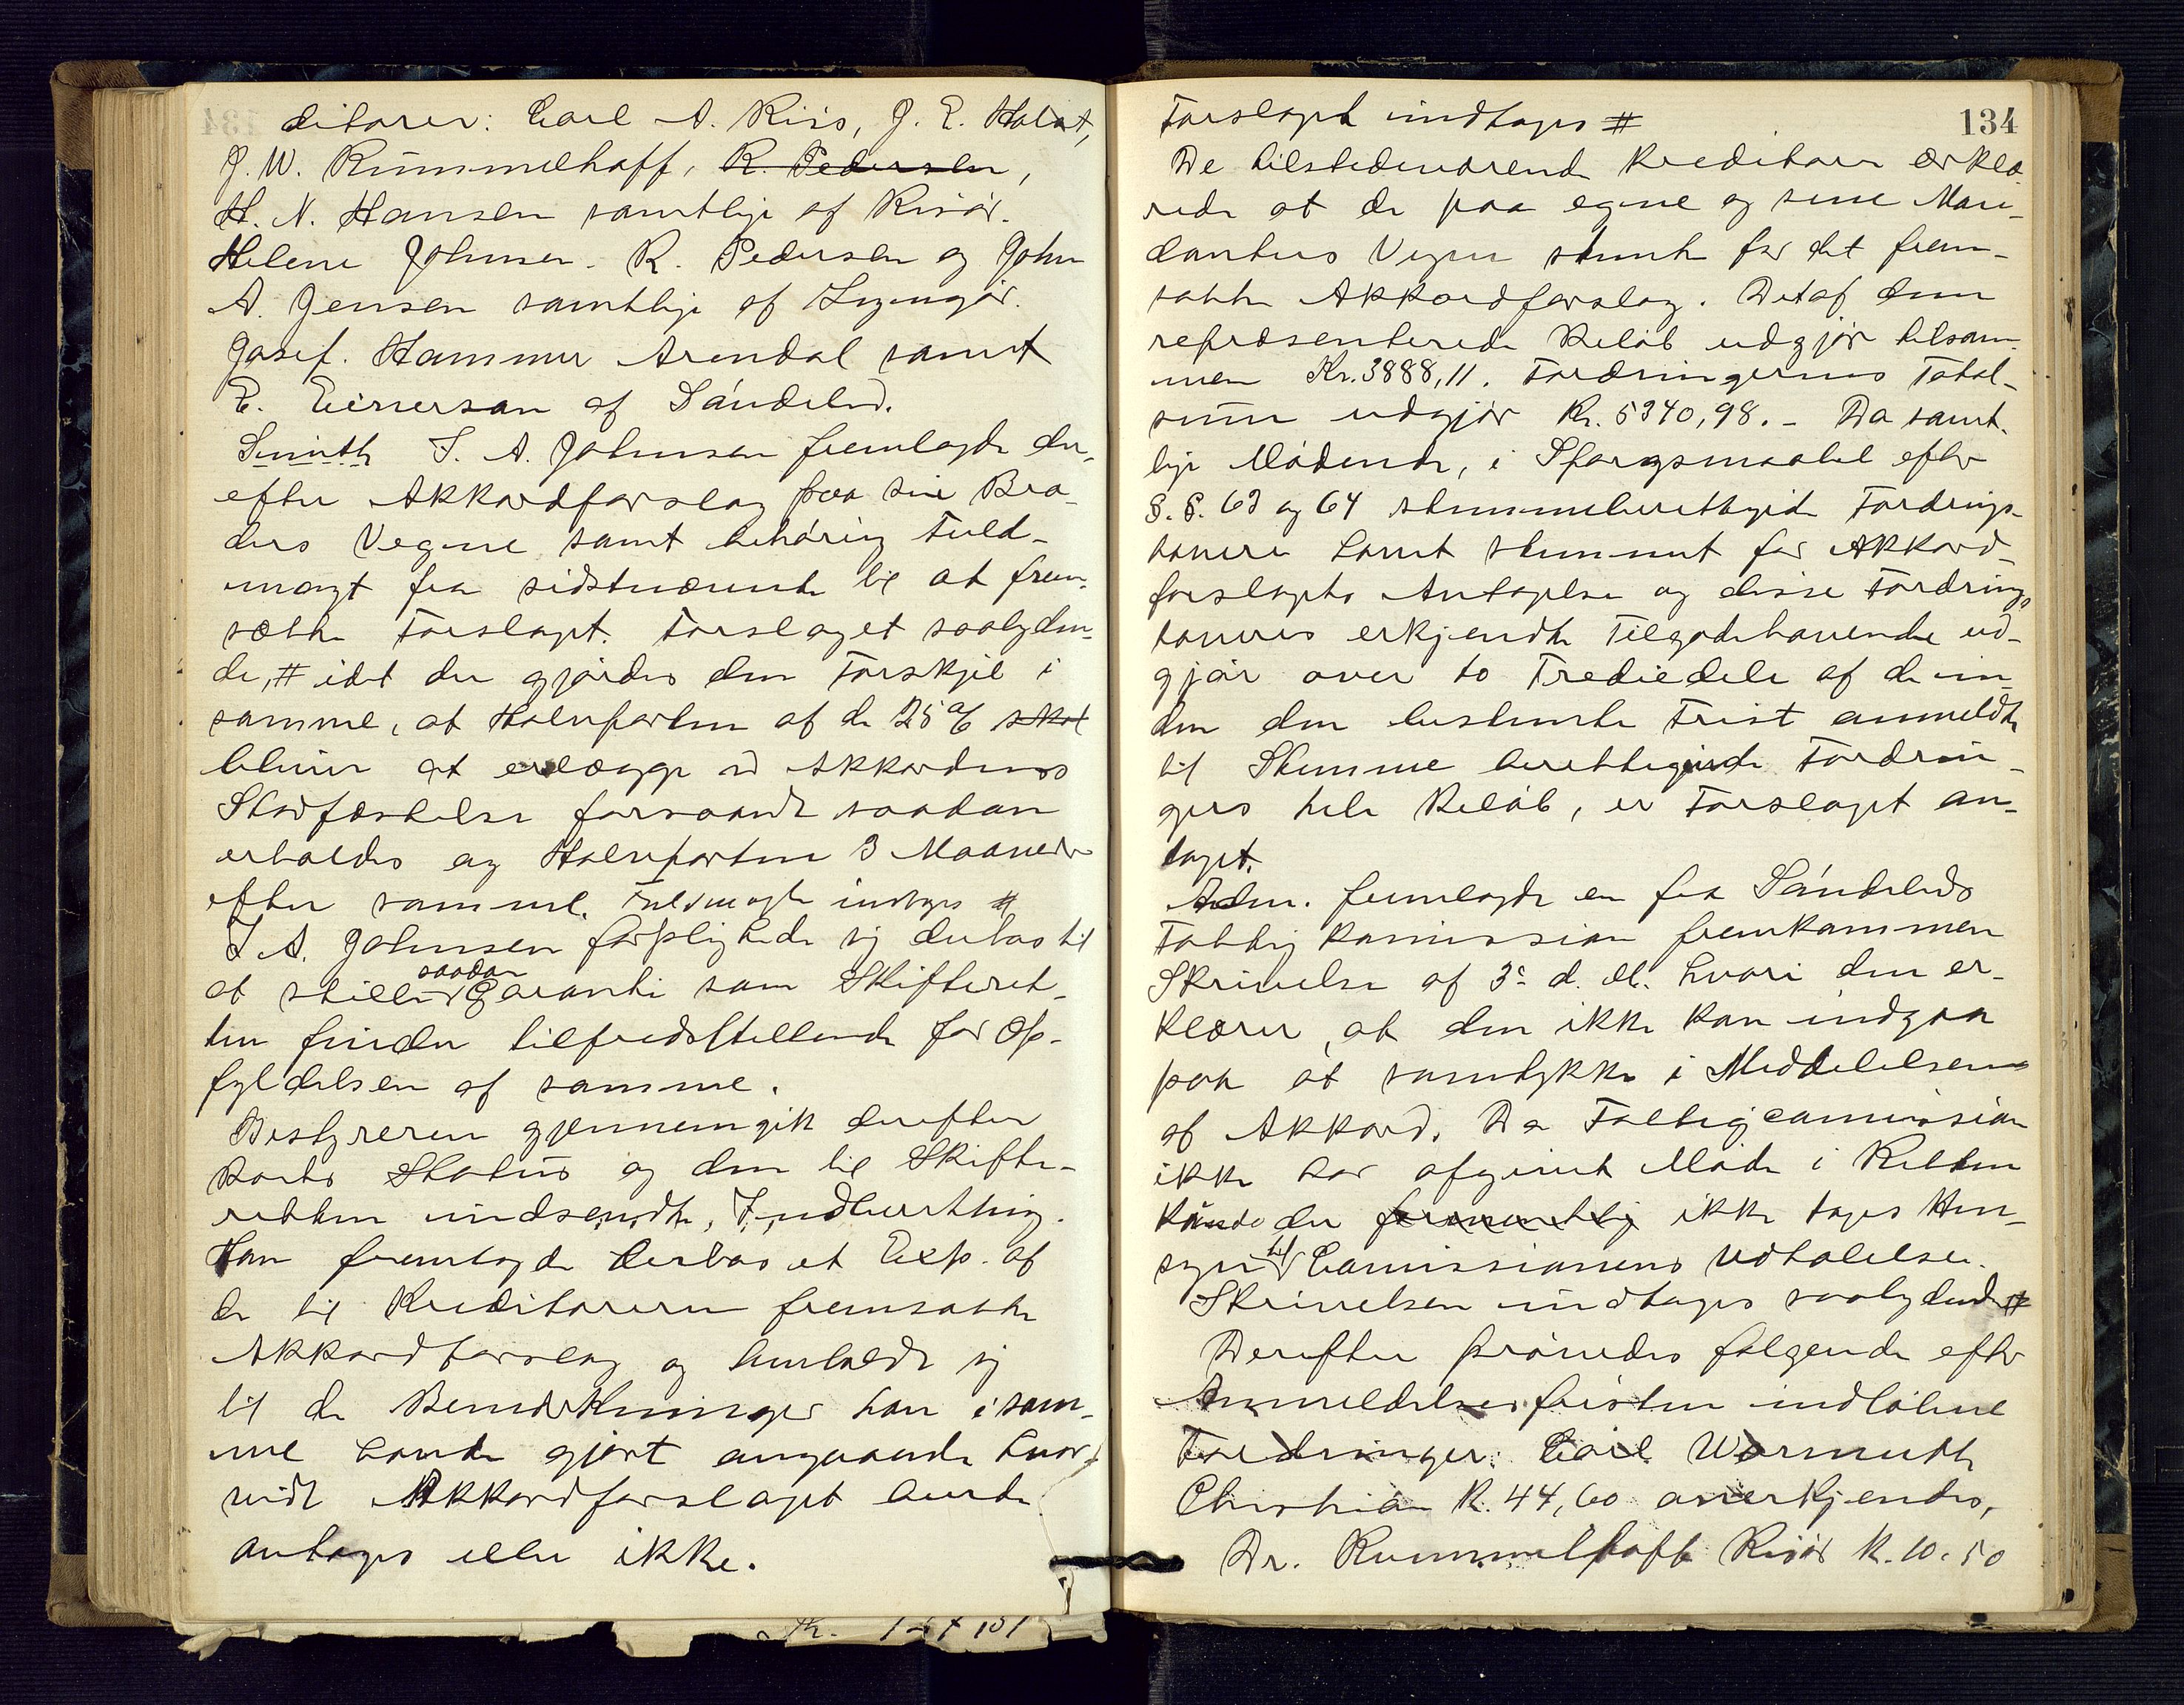 ditorer: Carl A. Riis, J. E. Holst,
J. W. Rümmelhoff, R. Pedersen,
H. N. Hansen samtlige af Risør.
Helene Johnsen. R. Pedersen og John
A. Jensen samtlige af Lyngør.
Josef. Hammer Arendal samt
E. Einersen af Søndeled.
Smith J. A. Johnsen fremlagde der-
efter Akkordforslag paa sin Bro-
ders Vegne samt behørig Fuld-
magt fra sidstnævnte til at frem-
sætte Forslaget. Forslaget saalyden-
de, # idet der gjordes den Forskjel i
samme, at Halvparten af de 25 % skal
bliver at erlægge ved Akkordens
Stadfæstelse forsaavidt saadan
erholdes og Halvparten 3 Maaneder
efter samme. Fuldmagten indtages #
J. A. Johnsen forpligtede sig derhos til
at stille saadan Garanti som Skifteret-
ten finder tilfredsstillende for Op-
fyldelsen af samme.
Bestyreren gjennemgik derefter
Boets Status og den til Skifte-
retten indsendte Indberetning.
Han fremlagde derhos et Exp. af
de til Kreditorerne fremsatte
Akkordforslag og henholdt sig
til de Bemærkninger han i sam-
me havde gjort angaaende hvor-
vidt Akkordforslaget burde
antages eller ikke.
134
Forslaget indtages #
De tilstedeværende Kreditorer erklæ-
rede at de paa egne og sine Man-
danters Vegne stemte for det frem-
satte Akkordforslag. Det af dem
repræsenterede Beløb udgjør tilsam-
men Kr. 3888,11. Fordringernes Total-
sum udgjør Kr. 5340,98. - Da samt-
lige Mødende, i Spørgsmaalet efter
§. §. 63 og 64 stemmeberettigede Fordrings-
havere havt stemmet for Akkord-
forslagets Antagelse og disse Fordrings
haveres erkjendte Tilgodehavende ud-
gjør over to Trediedele af de in-
den den bestemte Frist anmeldte
til Stemme berettigende Fordrin-
gers hele Beløb, er Forslaget an-
taget.
Adm. fremlagde en fra Søndeleds
Fattigkomission fremkommen
Skrivelse af 3e d. M. hvori den er-
klærer, at den ikke kan indgaa
paa at samtykke i Meddelelsen
af Akkord. Da Fattigcomission
ikke har afgivet Møde i Retten
kunde der formentlig ikke tages Hen-
syn til Comissionens Udtalelse.
Skrivelsen indtages saalydende #
Derefter prøvedes følgende efter
Anmeldelsesfristen indløbne
Fordringer: Carl Warmuth
Christia K. 44,60 anerkjendes,
Dr. Rummelhoff Risør K. 10.50